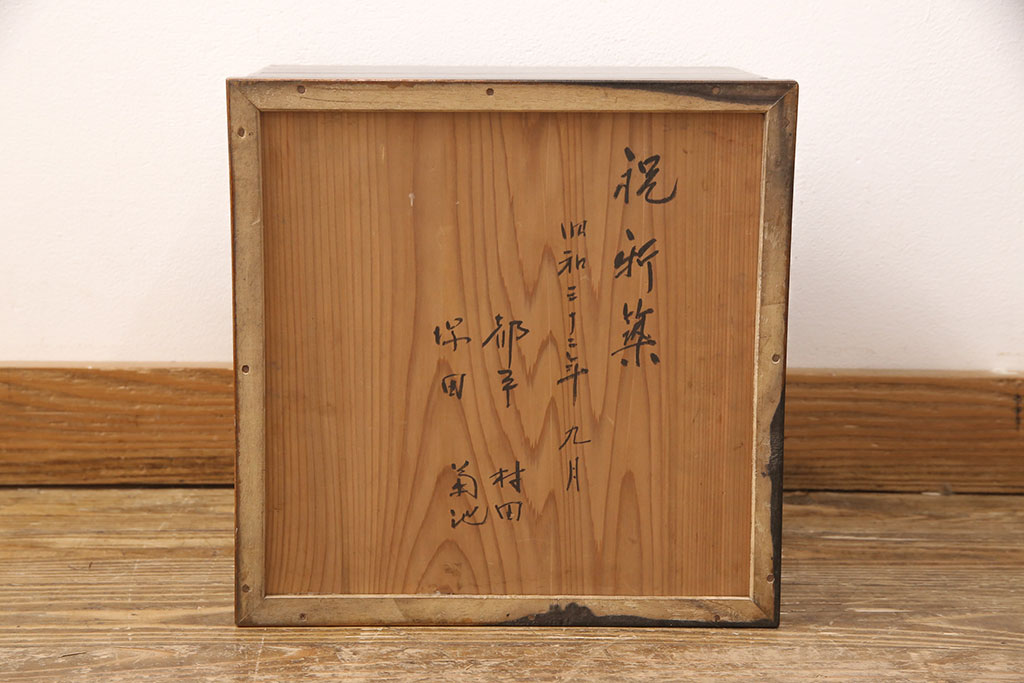 祝新築
昭和三十二年 九月
都平 村田
保田 菊池